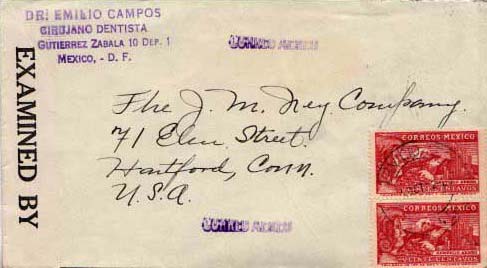 DR. EMILIO CAMPOS
CIRUJANO DENTISTA
GUTIERREZ ZABALA 10 DEP. 1
MEXICO, - D. F.
CORREO AEREO
EXAMINED BY
The J. M. Ney Company.
71 Elm Street.
Hartford, Conn.
U.S.A.
CORREOS MEXICO
CORREOS MEXICO
VEINTE CENTAVOS
CORREO AEREO